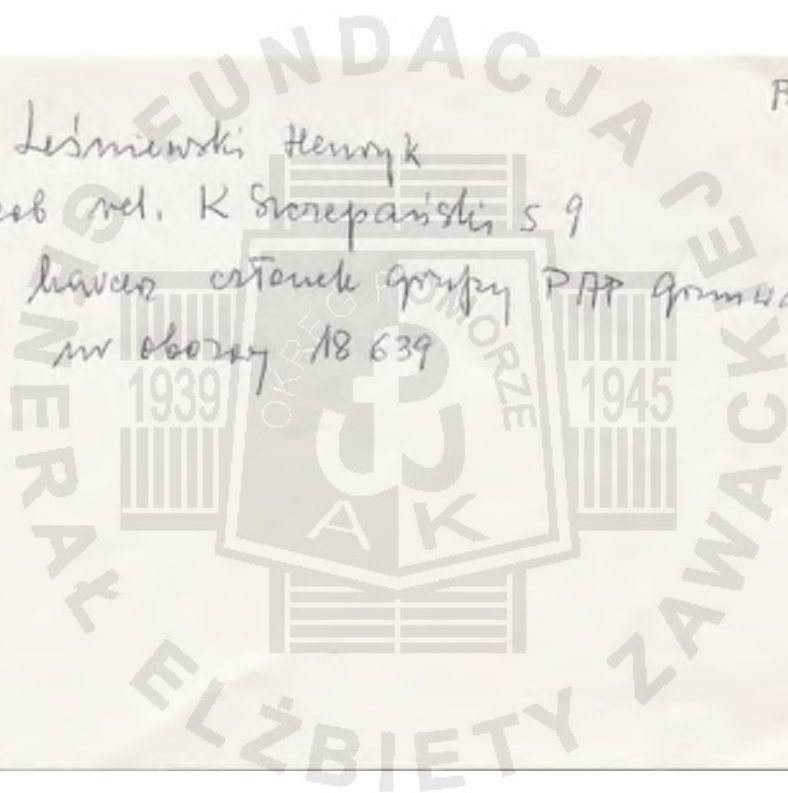 Leśniewski Henryk
rel. K Szczepański s 9
harcerz członek grupy PAP
nr obozowy 18 639
FUNDACJA
GENERAŁ ELŻBIETY ZAWACK
OKRĘG POMORZE
1939
1945
AK